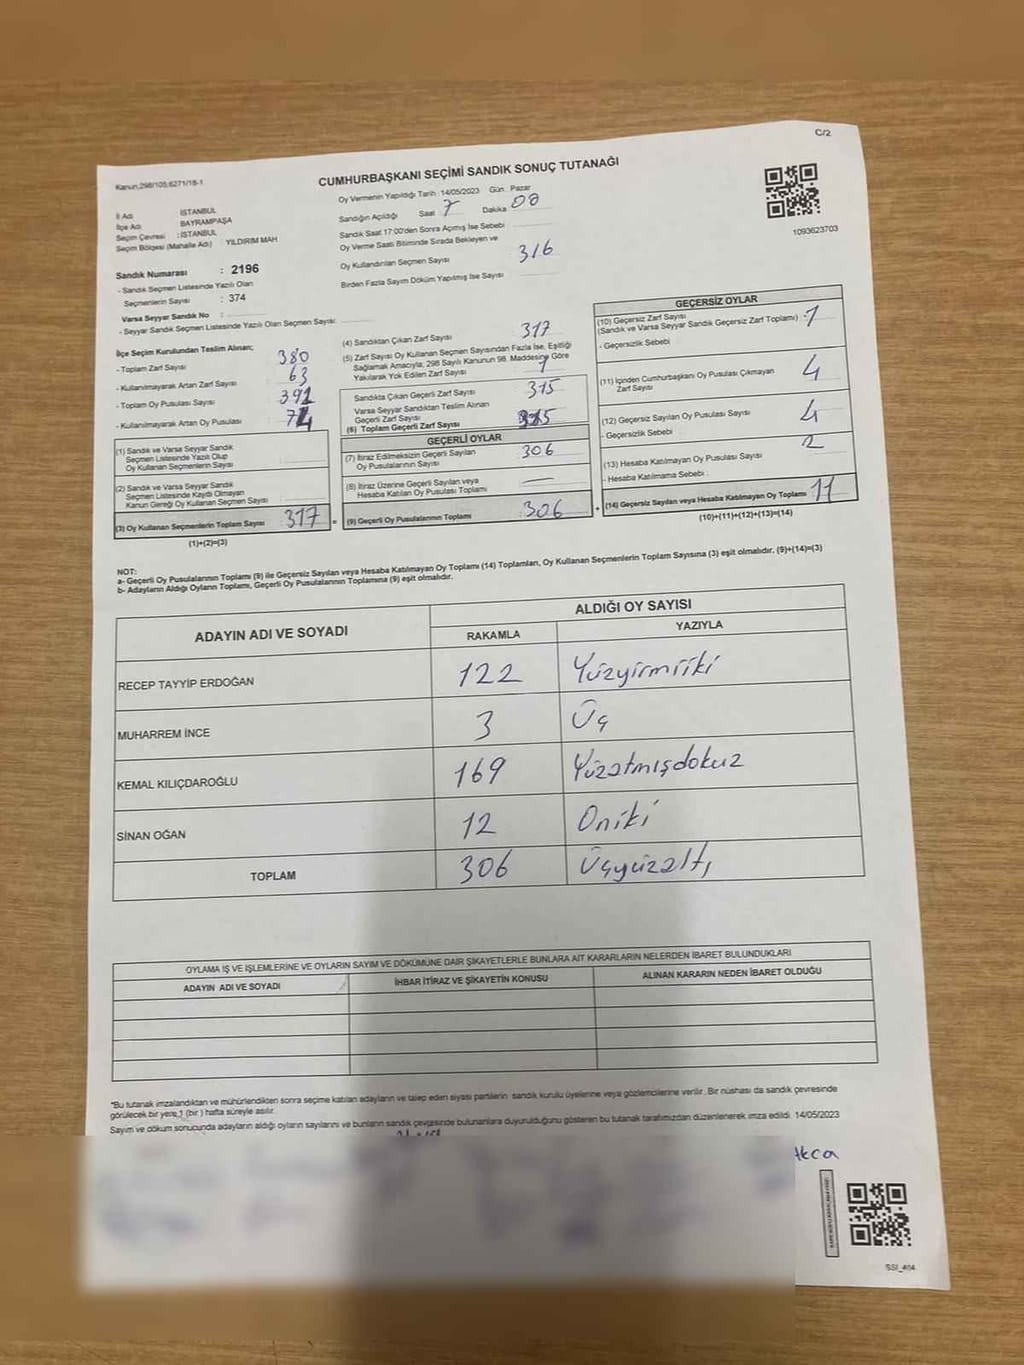 C/2
Kanun,298/105;6271/18-1
CUMHURBAŞKANI SEÇİMİ SANDIK SONUÇ TUTANAĞI
1093623703
İl Adı : İSTANBUL
İlçe Adı : BAYRAMPAŞA
Seçim Çevresi : İSTANBUL
Seçim Bölgesi (Mahalle Adı) YILDIRIM MAH
Sandık Numarası : 2196
- Sandık Seçmen Listesinde Yazılı Olan
Seçmenlerin Sayısı : 374
Varsa Seyyar Sandık No :
- Seyyar Sandık Seçmen Listesinde Yazılı Olan Seçmen Sayısı:
Oy Vermenin Yapıldığı Tarih :14/05/2023 Gün : Pazar
Sandığın Açıldığı Saat 7 Dakika 00
Sandık Saat 17:00'den Sonra Açılmış İse Sebebi
Oy Verme Saati Bitiminde Sırada Bekleyen ve
Oy Kullandırılan Seçmen Sayısı 316
Birden Fazla Sayım Döküm Yapılmış İse Sayısı
İlçe Seçim Kurulundan Teslim Alınan;
- Toplam Zarf Sayısı 380
- Kullanılmayarak Artan Zarf Sayısı 63
- Toplam Oy Pusulası Sayısı 391
- Kullanılmayarak Artan Oy Pusulası 74
(1) Sandık ve Varsa Seyyar Sandık
Seçmen Listesinde Yazılı Olup
Oy Kullanan Seçmenlerin Sayısı :
(2) Sandık ve Varsa Seyyar Sandık
Seçmen Listesinde Kaydı Olmayan
Kanun Gereği Oy Kullanan Seçmen Sayısı :
(3) Oy Kullanan Seçmenlerin Toplam Sayısı 317
(1)+(2)=(3)
(4) Sandıktan Çıkan Zarf Sayısı 317
(5) Zarf Sayısı Oy Kullanan Seçmen Sayısından Fazla İse, Eşitliği
Sağlamak Amacıyla; 298 Sayılı Kanunun 98. Maddesine Göre
Yakılarak Yok Edilen Zarf Sayısı 1
Sandıkta Çıkan Geçerli Zarf Sayısı 315
Varsa Seyyar Sandıktan Teslim Alınan
Geçerli Zarf Sayısı
(6) Toplam Geçerli Zarf Sayısı 315
GEÇERLİ OYLAR
(7) İtiraz Edilmeksizin Geçerli Sayılan
Oy Pusulalarının Sayısı 306
(8) İtiraz Üzerine Geçerli Sayılan veya
Hesaba Katılan Oy Pusulası Toplamı —
= (9) Geçerli Oy Pusulalarının Toplamı 306
GEÇERSİZ OYLAR
(10) Geçersiz Zarf Sayısı
(Sandık ve Varsa Seyyar Sandık Geçersiz Zarf Toplamı) : 1
- Geçersizlik Sebebi
(11) İçinden Cumhurbaşkanı Oy Pusulası Çıkmayan
Zarf Sayısı 4
(12) Geçersiz Sayılan Oy Pusulası Sayısı 4
- Geçersizlik Sebebi :
(13) Hesaba Katılmayan Oy Pusulası Sayısı 2
- Hesaba Katılmama Sebebi :
+ (14) Geçersiz Sayılan veya Hesaba Katılmayan Oy Toplamı 11
(10)+(11)+(12)+(13)=(14)
NOT:
a- Geçerli Oy Pusulalarının Toplamı (9) ile Geçersiz Sayılan veya Hesaba Katılmayan Oy Toplamı (14) Toplamları, Oy Kullanan Seçmenlerin Toplam Sayısına (3) eşit olmalıdır. (9)+(14)=(3)
b- Adayların Aldığı Oyların Toplamı, Geçerli Oy Pusulalarının Toplamına (9) eşit olmalıdır.
ADAYIN ADI VE SOYADI ALDIĞI OY SAYISI
RAKAMLA YAZIYLA
RECEP TAYYİP ERDOĞAN 122 Yüzyirmiiki
MUHARREM İNCE 3 Üç
KEMAL KILIÇDAROĞLU 169 Yüzatmışdokuz
SİNAN OĞAN 12 Oniki
TOPLAM 306 Üçyüzaltı
OYLAMA İŞ VE İŞLEMLERİNE VE OYLARIN SAYIM VE DÖKÜMÜNE DAİR ŞİKAYETLERLE BUNLARA AİT KARARLARIN NELERDEN İBARET BULUNDUKLARI
ADAYIN ADI VE SOYADI İHBAR İTİRAZ VE ŞİKAYETİN KONUSU ALINAN KARARIN NEDEN İBARET OLDUĞU
*Bu tutanak imzalandıktan ve mühürlendikten sonra seçime katılan adayların ve talep eden siyasi partilerin sandık kurulu üyelerine veya gözlemcilerine verilir. Bir nüshası da sandık çevresinde
görülecek bir yere 1 (bir ) hafta süreyle asılır.
Sayım ve döküm sonucunda adayların aldığı oyların sayılarını ve bunların sandık çevresinde bulunanlara duyurulduğunu gösteren bu tutanak tarafımızdan düzenlenerek imza edildi. 14/05/2023
Akca